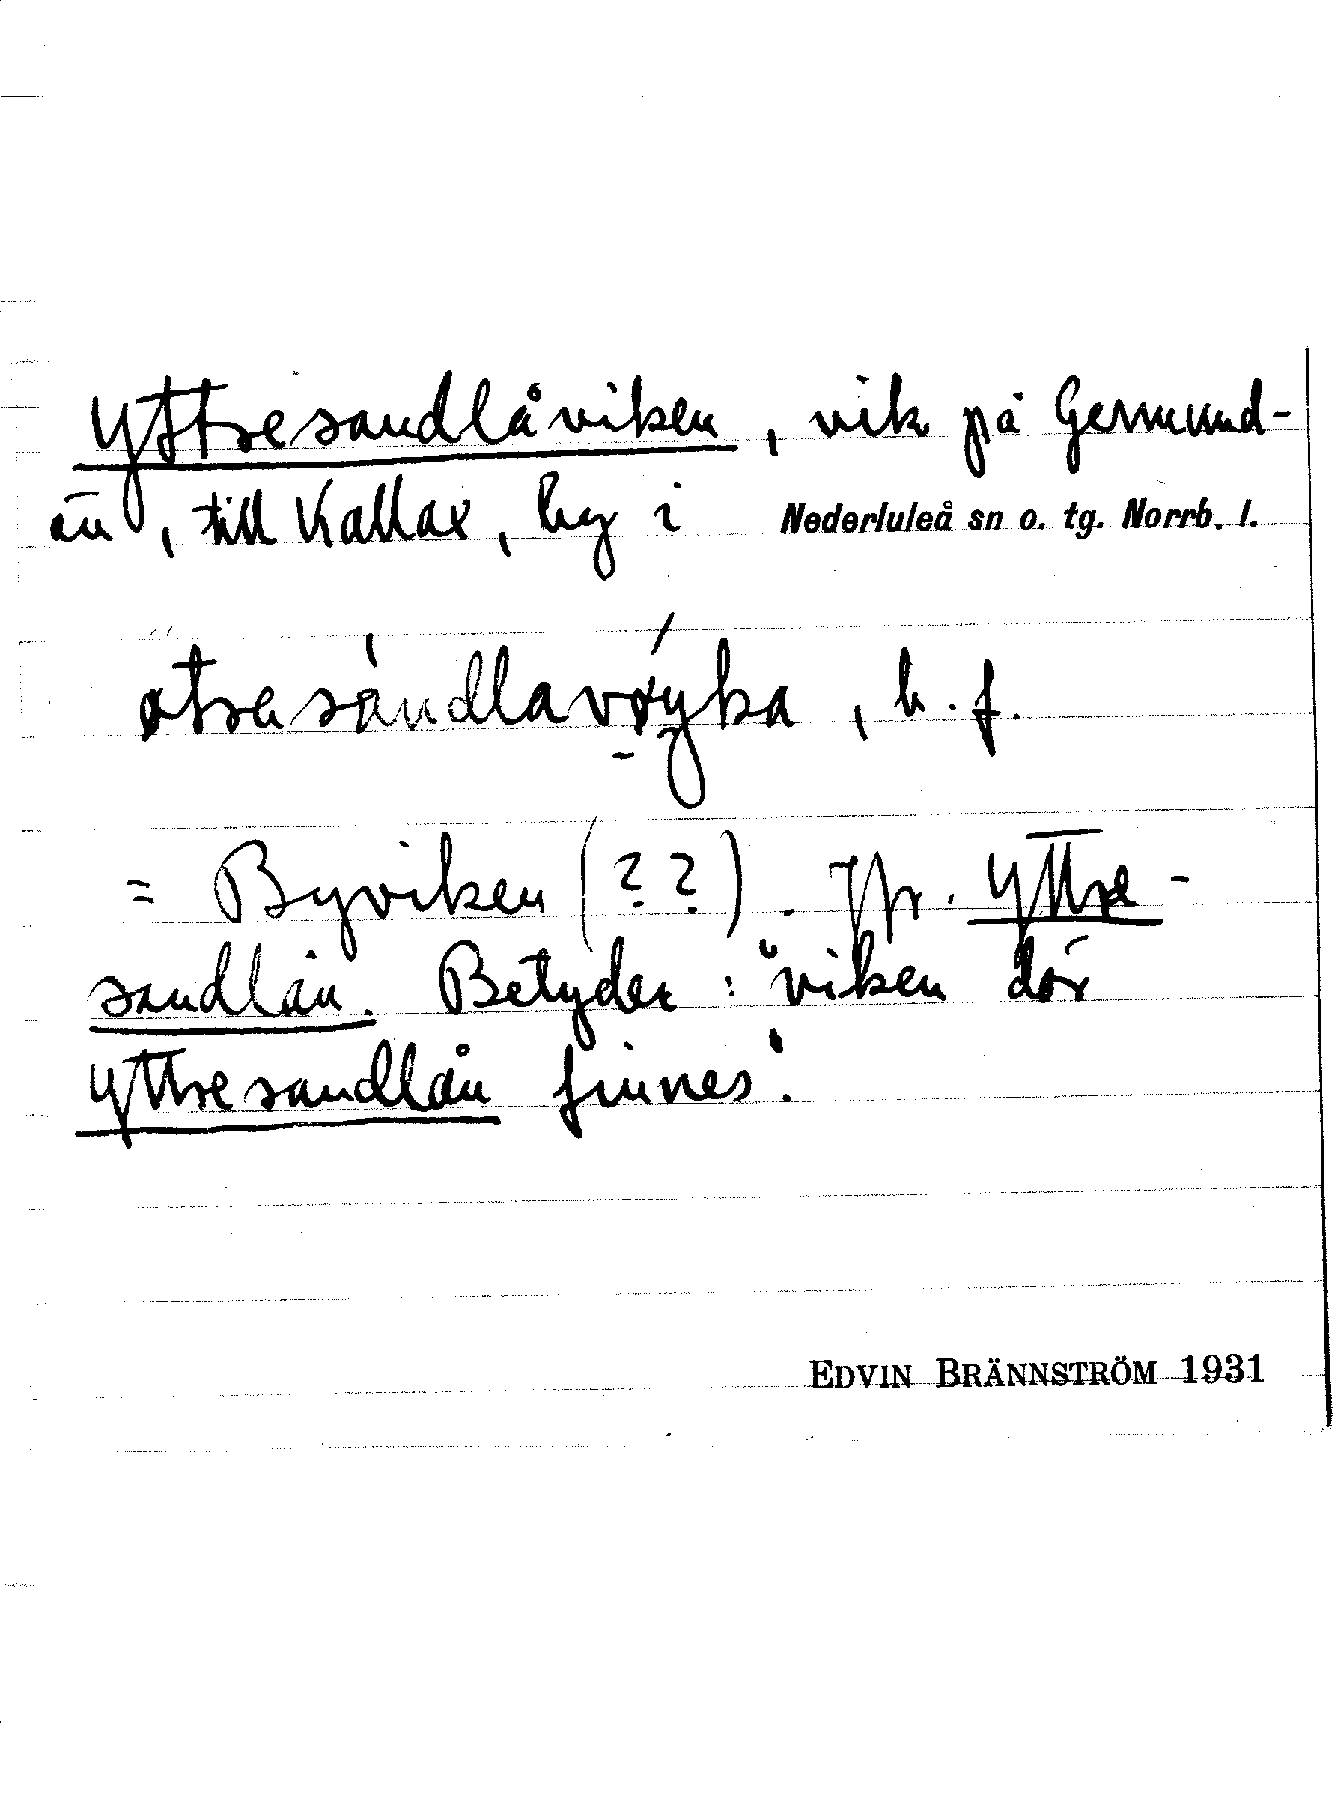 Yttresandlåviken, vik på Germund-
ön, till Kallax, by i Nederluleå sn o. tg. Norrb. l.
b. f.
= Byviken (??). Jfr. Yttre-
sandlån. Betyder: "viken där
Yttresandlån finnes".
EDVIN BRÄNNSTRÖM 1931